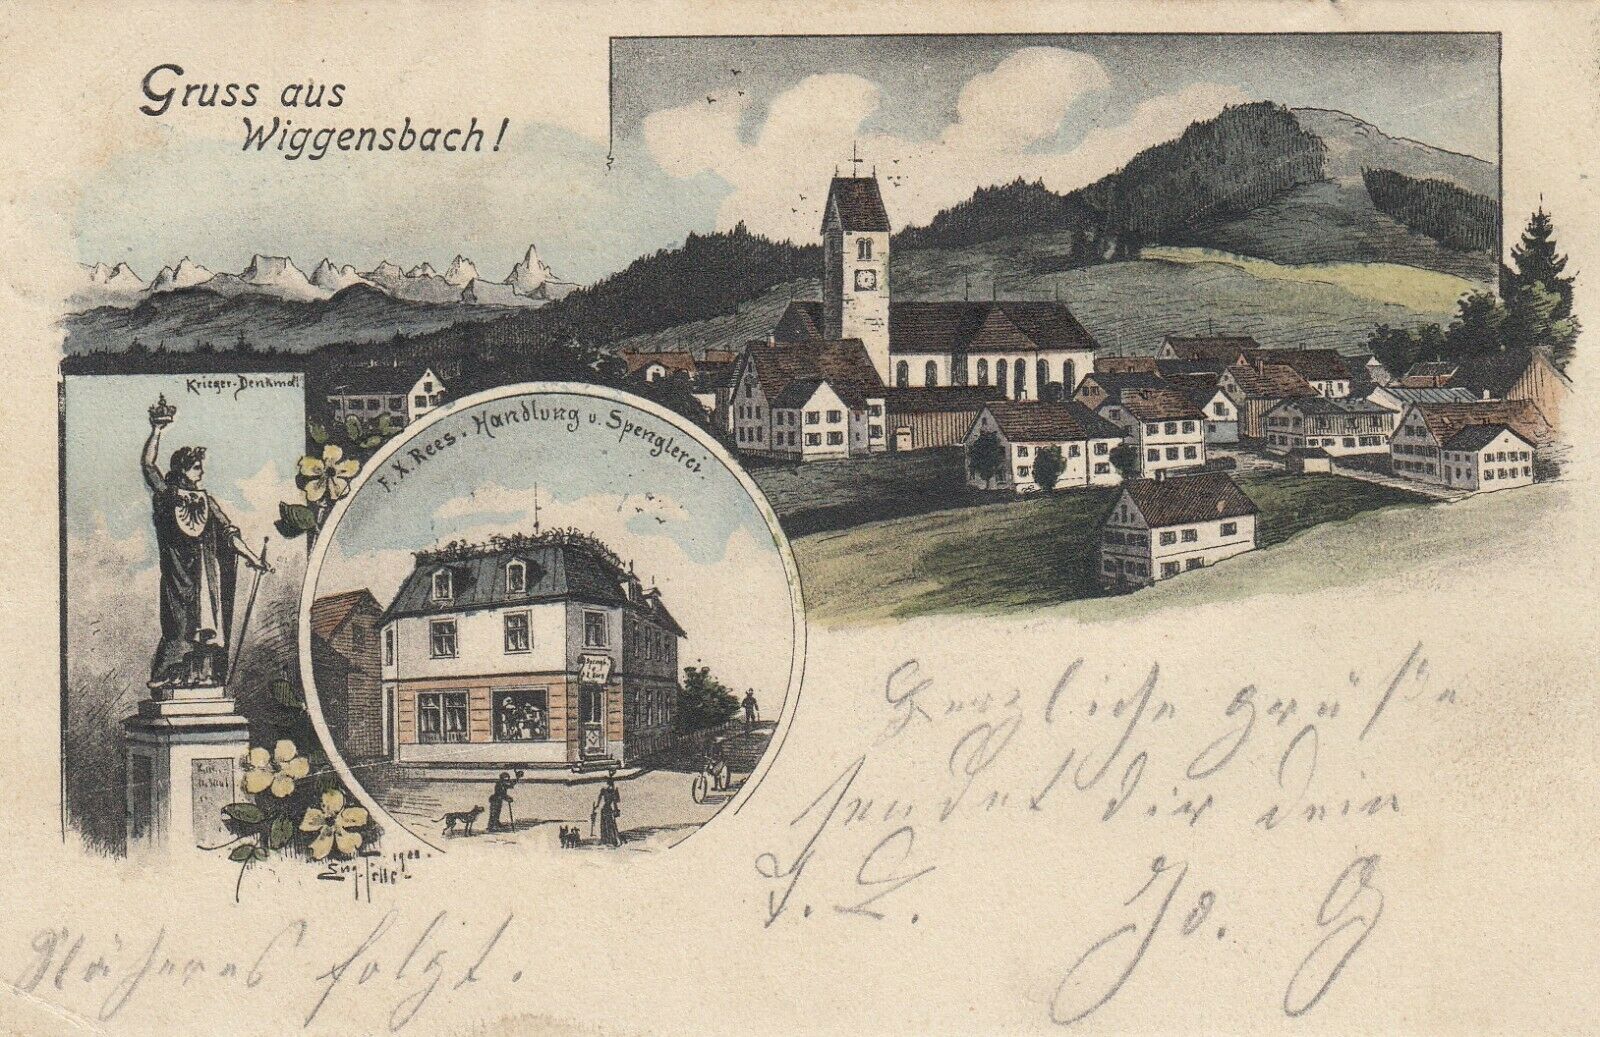 Gruss aus
Wiggensbach!
Krieger-Denkmal
F. X. Rees. Handlung u. Spenglerei.
Eug. Felle 1900.
Herzliche Grüße
sendet dir dein
J. L. Jo. G
Näheres folgt.